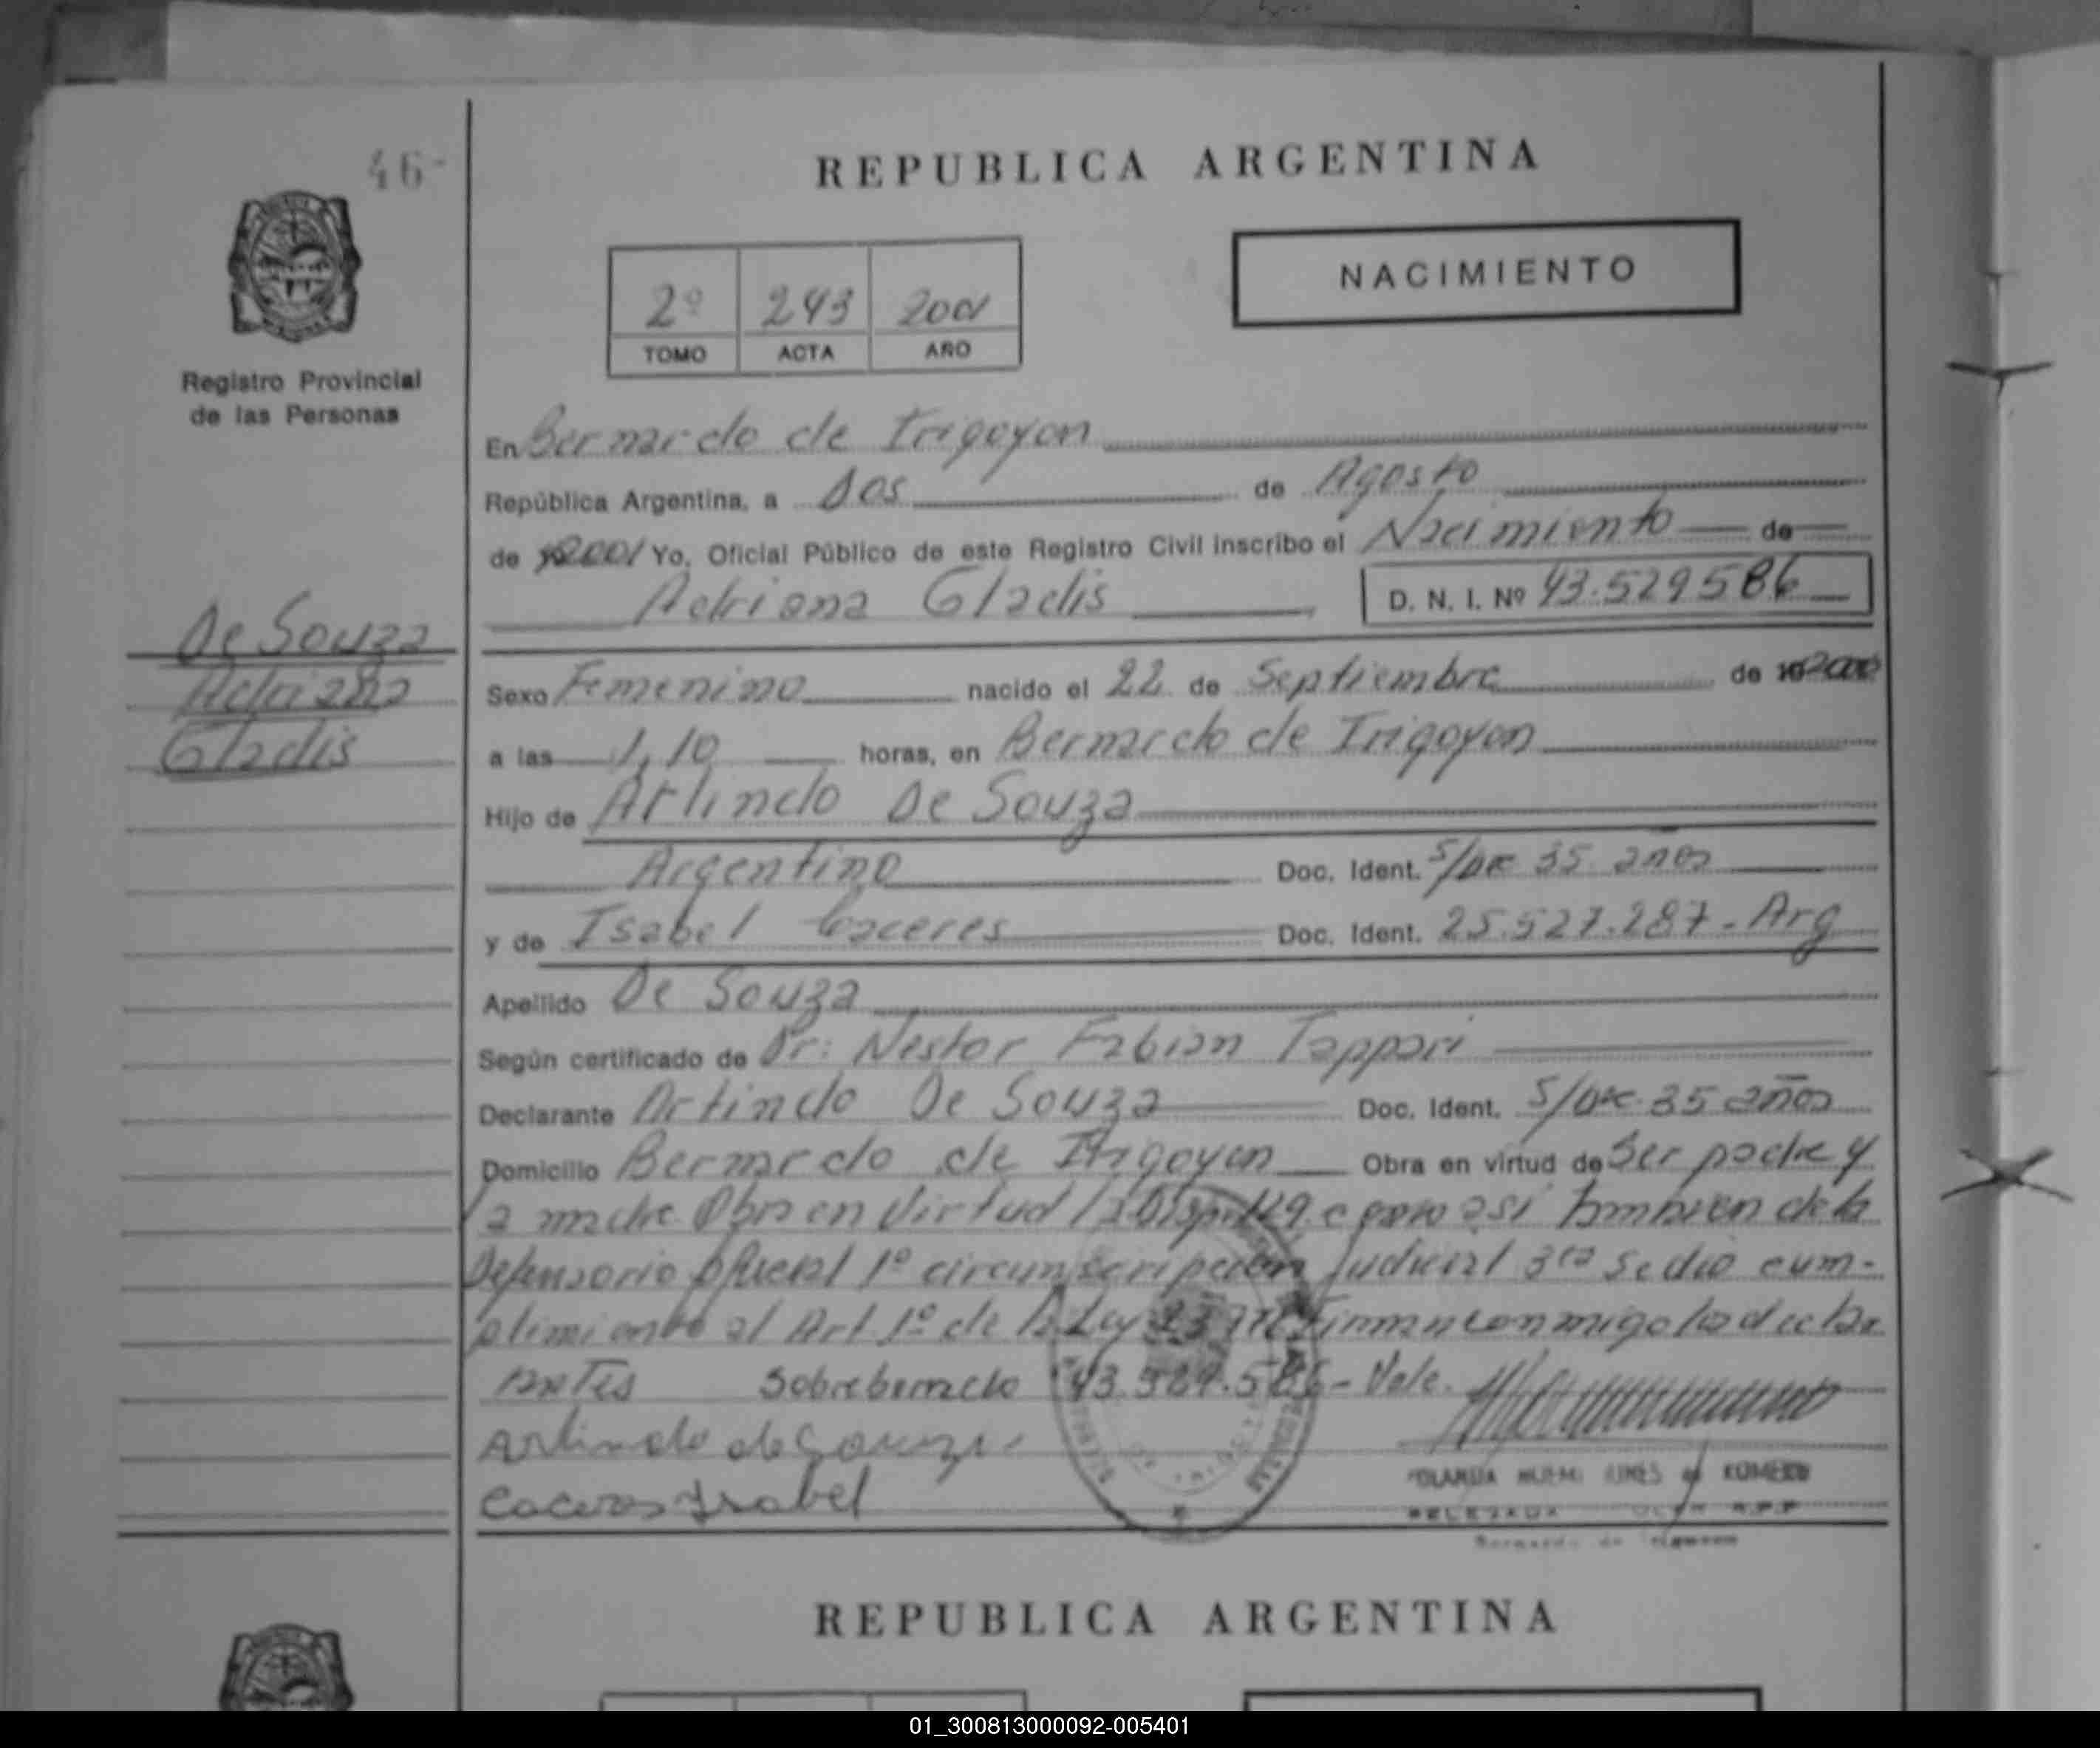 46-
REPUBLICA ARGENTINA
NACIMIENTO
2º 243 2001
TOMO ACTA AÑO
Registro Provincial
de las Personas
En Bernardo de Irigoyen
República Argentina, a Dos de Agosto
de 2001 Yo, Oficial Público de este Registro Civil inscribo el Nacimiento de
Adriana Gladis D. N. I. Nº 43.529586
De Souza
Adriana
Gladis
Sexo Femenino nacido el 22 de Septiembre de 2000
a las 1,10 horas, en Bernardo de Irigoyen
Hijo de Arlindo De Souza
Argentino Doc. Ident. S/Doc 35 años
y de Isabel Caceres Doc. Ident. 25.527.287 - Arg
Apellido De Souza
Según certificado de Dr: Nestor Fabian Tappari
Declarante Arlindo De Souza Doc. Ident. S/Doc 35 años
Domicilio Bernardo de Irigoyen Obra en virtud de Ser padre y
a madre Obra en Virtud Disp. 429 como asi tambien de la
Defensoria Oficial 1º circunscripción Judicial 3ra se dio cum-
plimiento al Art 1º de la Ley Firman conmigo los decla
rantes Sobreborrado - Vale.
Arlindo de Souza
Caceres Isabel
ROMERO
Bernardo de Irigoyen
REPUBLICA ARGENTINA
01_300813000092-005401